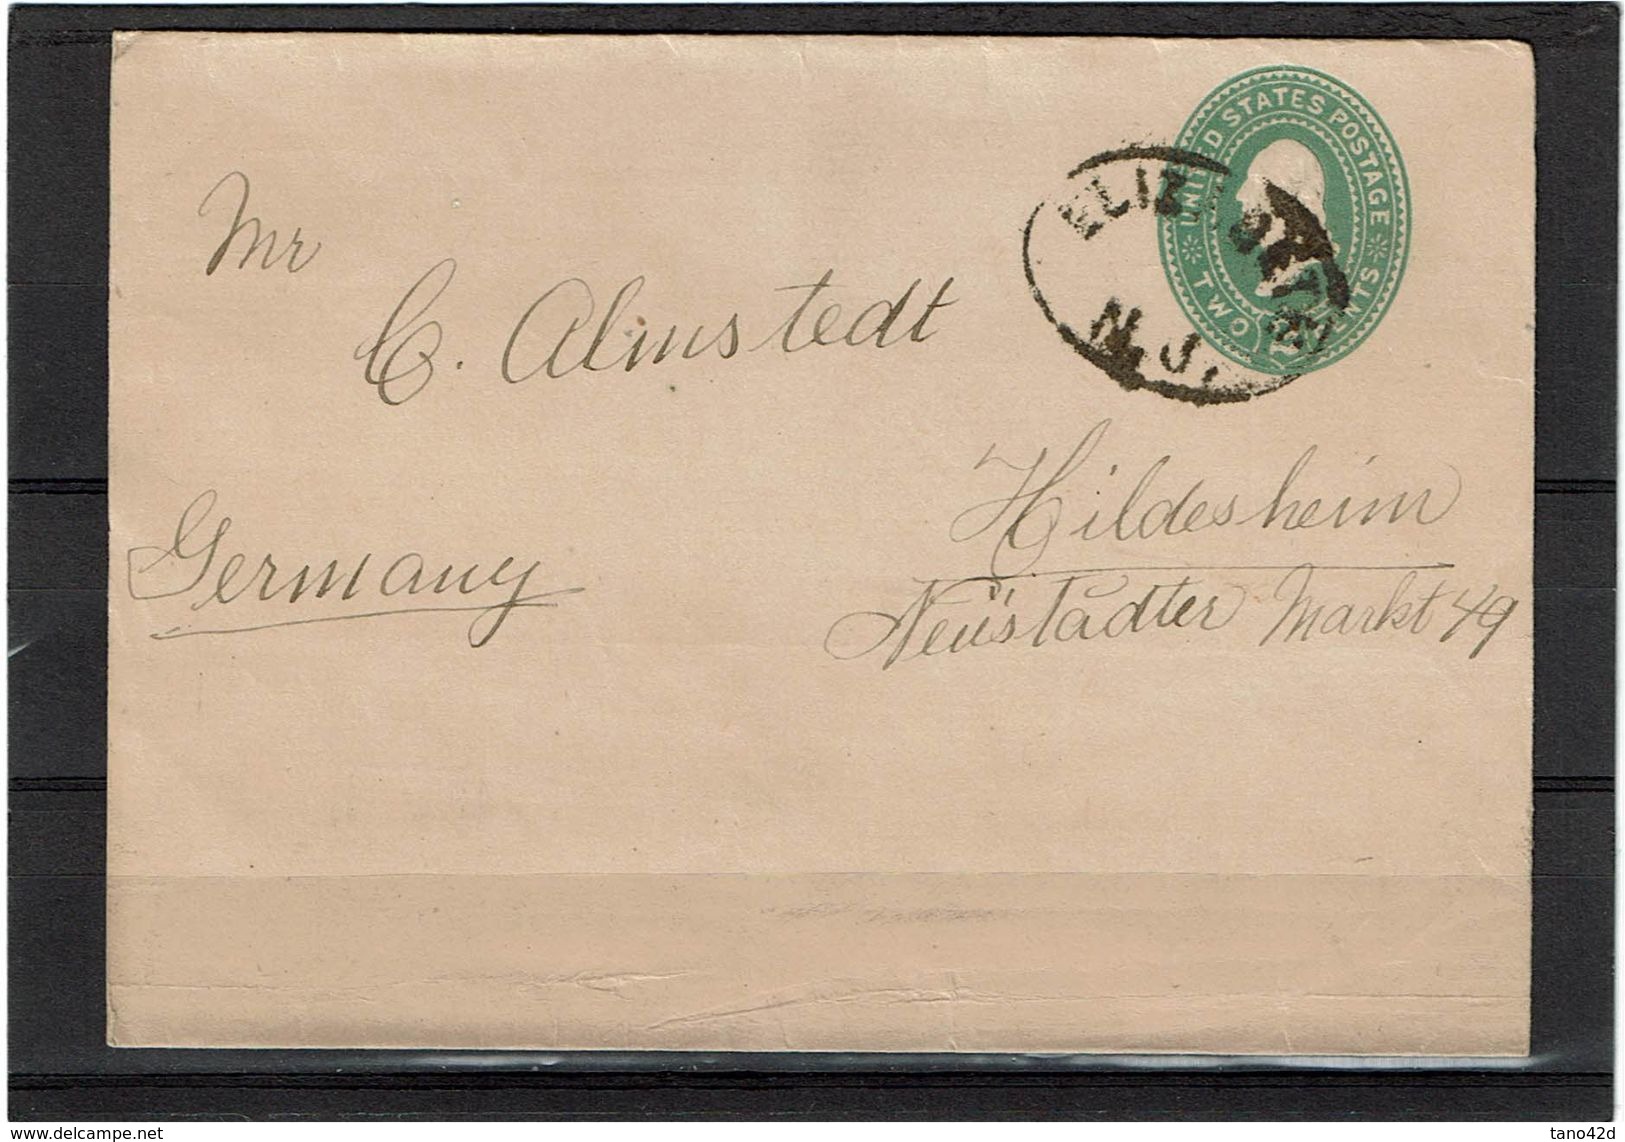 UNITED STATES POSTAGE
TWO CENTS
2
ELIZABETH
N.J.
Mr
C. Almstedt
Hildesheim
Germany
Neüstädter Markt 49
www.delcampe.net
tano42d